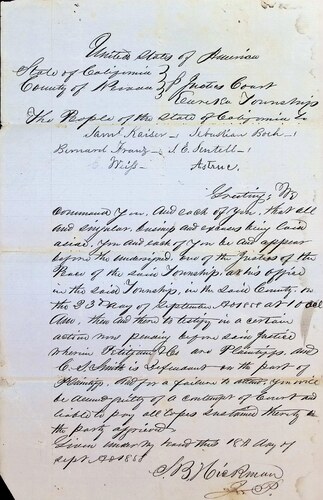 United States of American
State of California } } Justes Court
County of } } Eureka Township
The People of the State of California to
Saml Kaiser – Sebastian Boch –
Bernard Franz – J. C. Sentell –
Weiss Astrue.
Greeting, We
Command You, And each of You, that all
and singular business and excuses being laid
aside. You and each of You be and appear
before the undersigned, One of the Justices of the
Peace of the said Township, at his office
in the said Township, in the said County, on
the 23d day of September AD 1858 at 10 oclk
AM, then and there to testify in a certain
action now pending before said Justice
wherein & Co are Plaintiffs and
C. S. Smith is Defendant on the part of
Plaintiff, And for a failure to attend, You will
be deemed guilty of a Contempt of Court and
liable to pay all Losses Sustained thereby to
the party agrieved
Given under my hand this 18th day of
Sept AD 1858
Hickman
J. P.